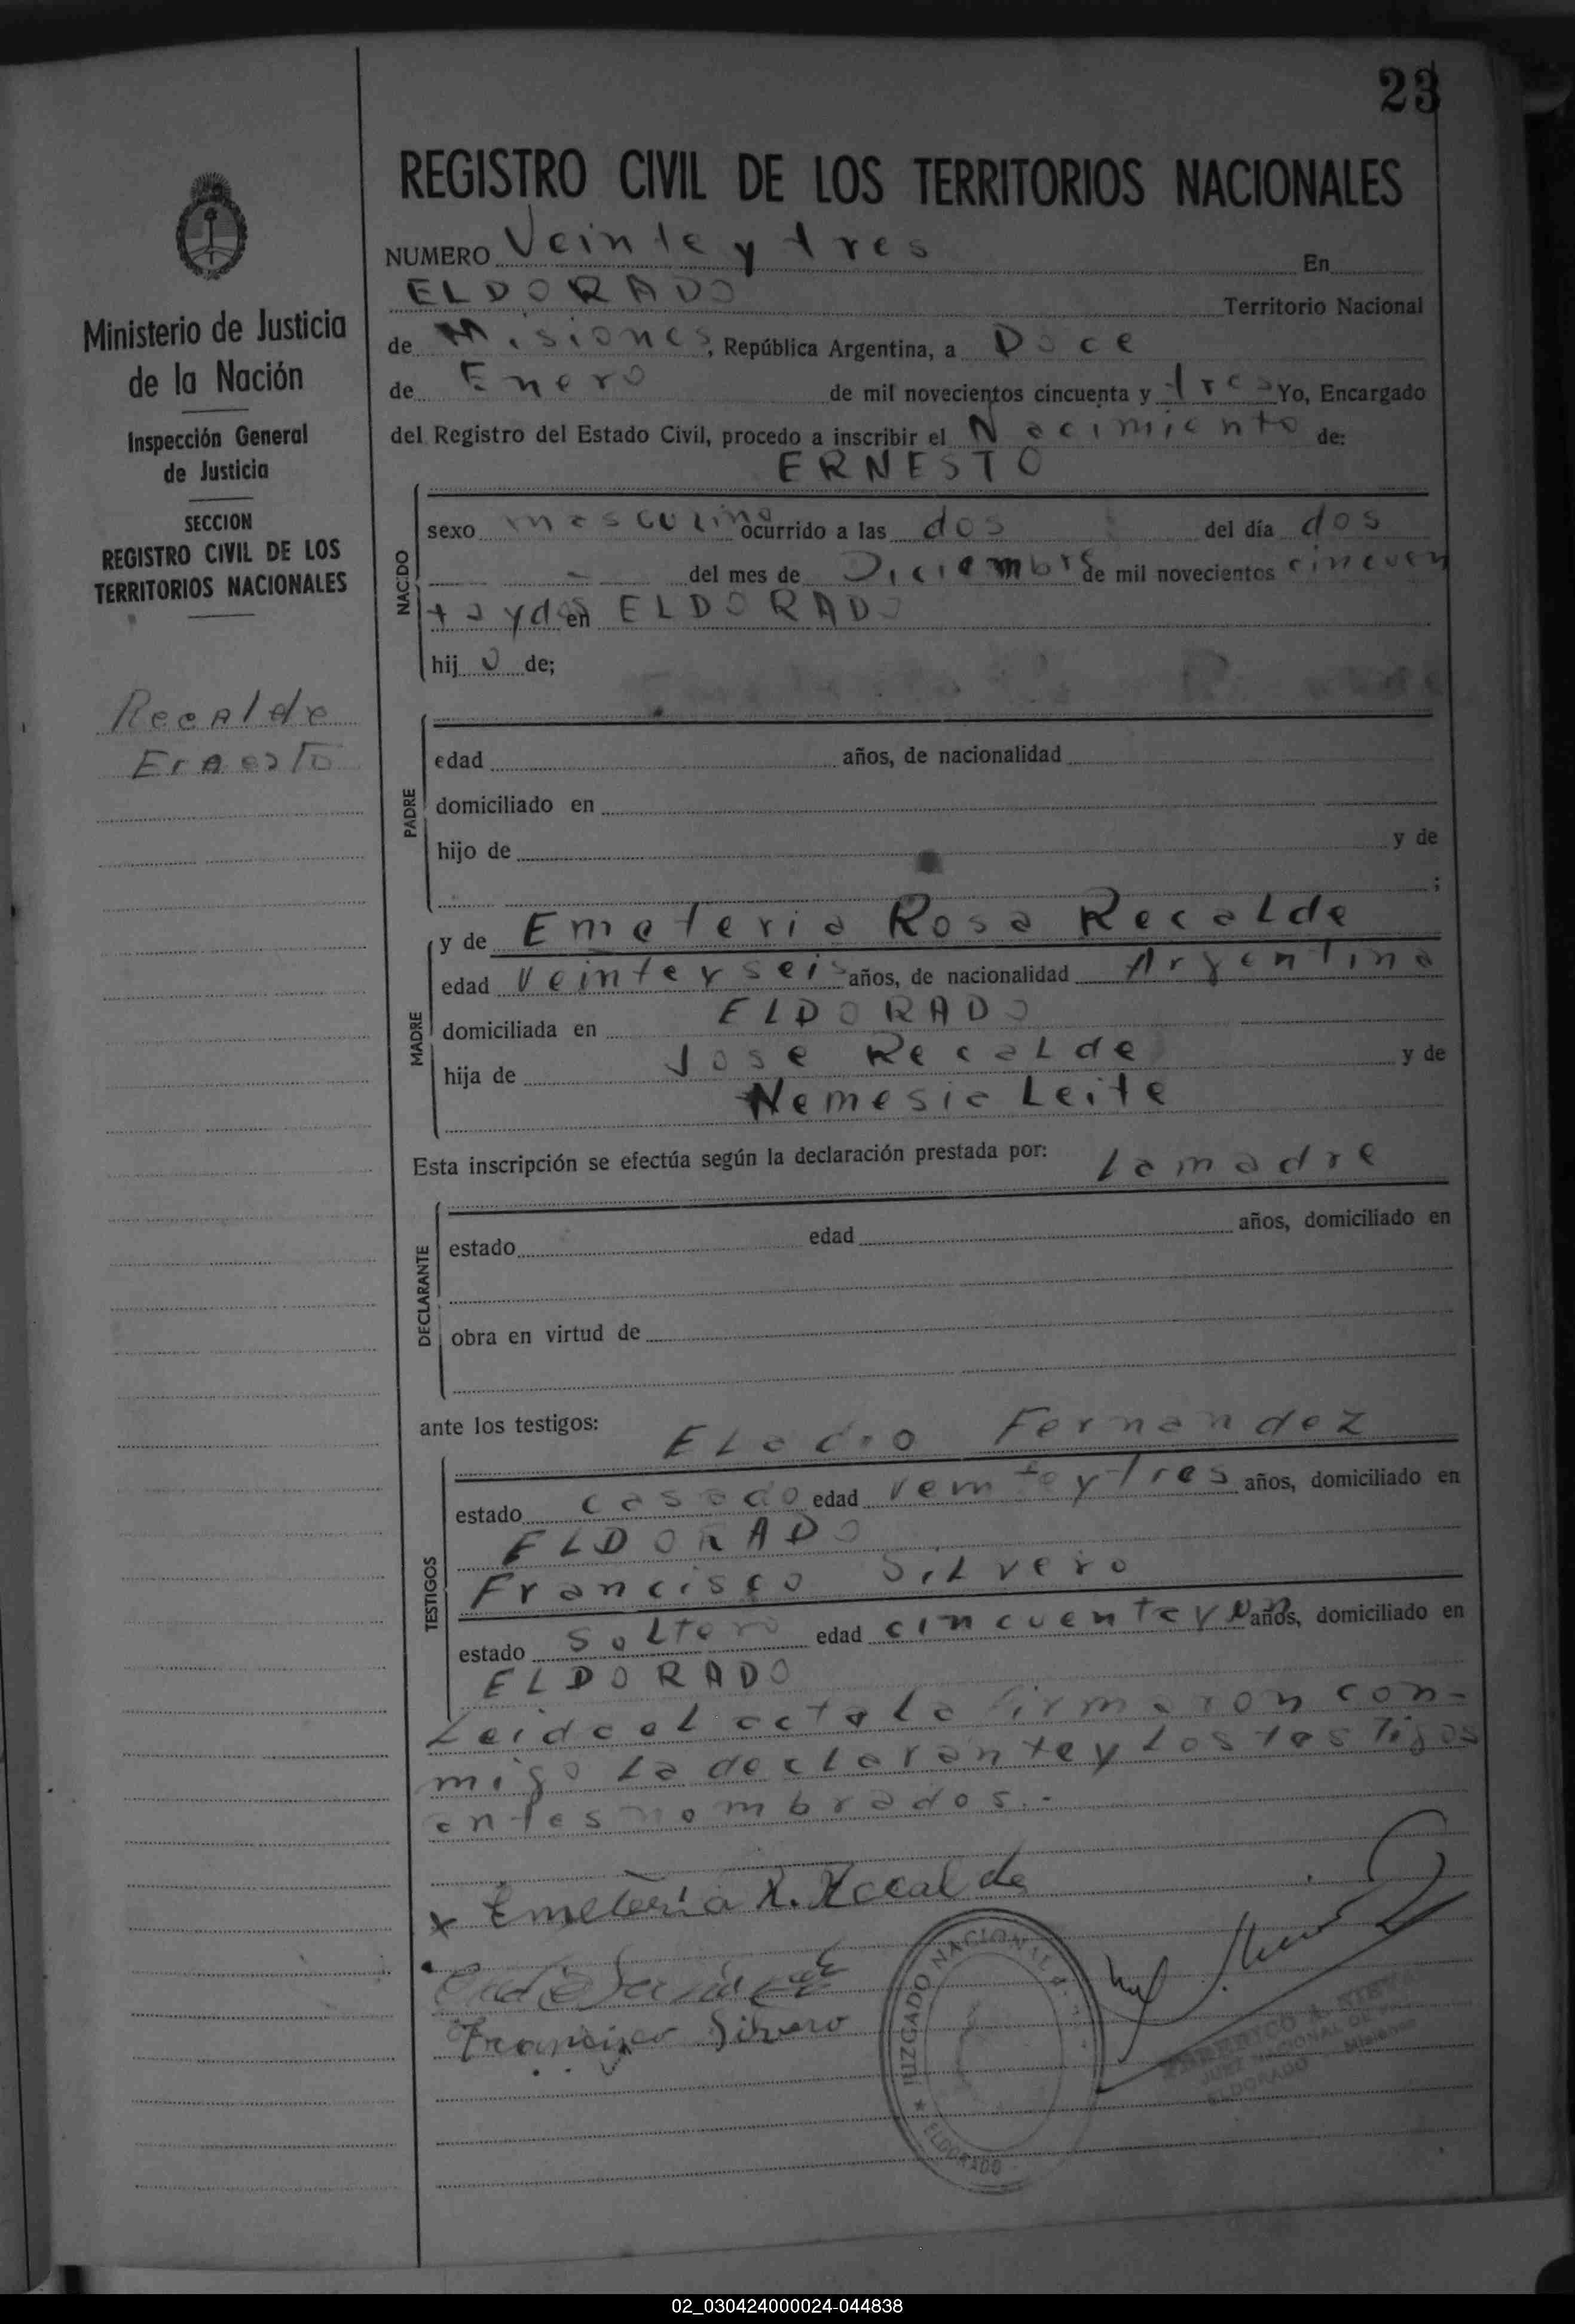 23
REGISTRO CIVIL DE LOS TERRITORIOS NACIONALES
NUMERO Veinte y tres En
ELDORADO Territorio Nacional
de Misiones, República Argentina, a Doce
de Enero de mil novecientos cincuenta y tres Yo, Encargado
del Registro del Estado Civil, procedo a inscribir el Nacimiento de:
ERNESTO
NACIDO
sexo masculino ocurrido a las dos del día dos
del mes de Diciembre de mil novecientos cincuen
ta y dos en ELDORADO
hijo de;
PADRE
edad años, de nacionalidad
domiciliado en
hijo de y de
;
MADRE
y de Emeteria Rosa Recalde
edad veinte y seis años, de nacionalidad Argentina
domiciliada en ELDORADO
hija de Jose Recalde y de
Nemesia Leite
Esta inscripción se efectúa según la declaración prestada por: La madre
DECLARANTE
estado edad años, domiciliado en
obra en virtud de
ante los testigos: Eladio Fernandez
TESTIGOS
estado casado edad veinte y tres años, domiciliado en
ELDORADO
Francisco Silvero
estado soltero edad cincuenta y un años, domiciliado en
ELDORADO
Leida el acta la firmaron con-
migo la declarante y los testigos
antes nombrados.-
x Emeteria R. Recalde
Francisco Silvero
JUZGADO NACIONAL
★ ELDORADO
JUEZ NACIONAL DE PAZ
ELDORADO Misiones
Ministerio de Justicia
de la Nación
Inspección General
de Justicia
SECCION
REGISTRO CIVIL DE LOS
TERRITORIOS NACIONALES
Recalde
Ernesto
02_030424000024-044838